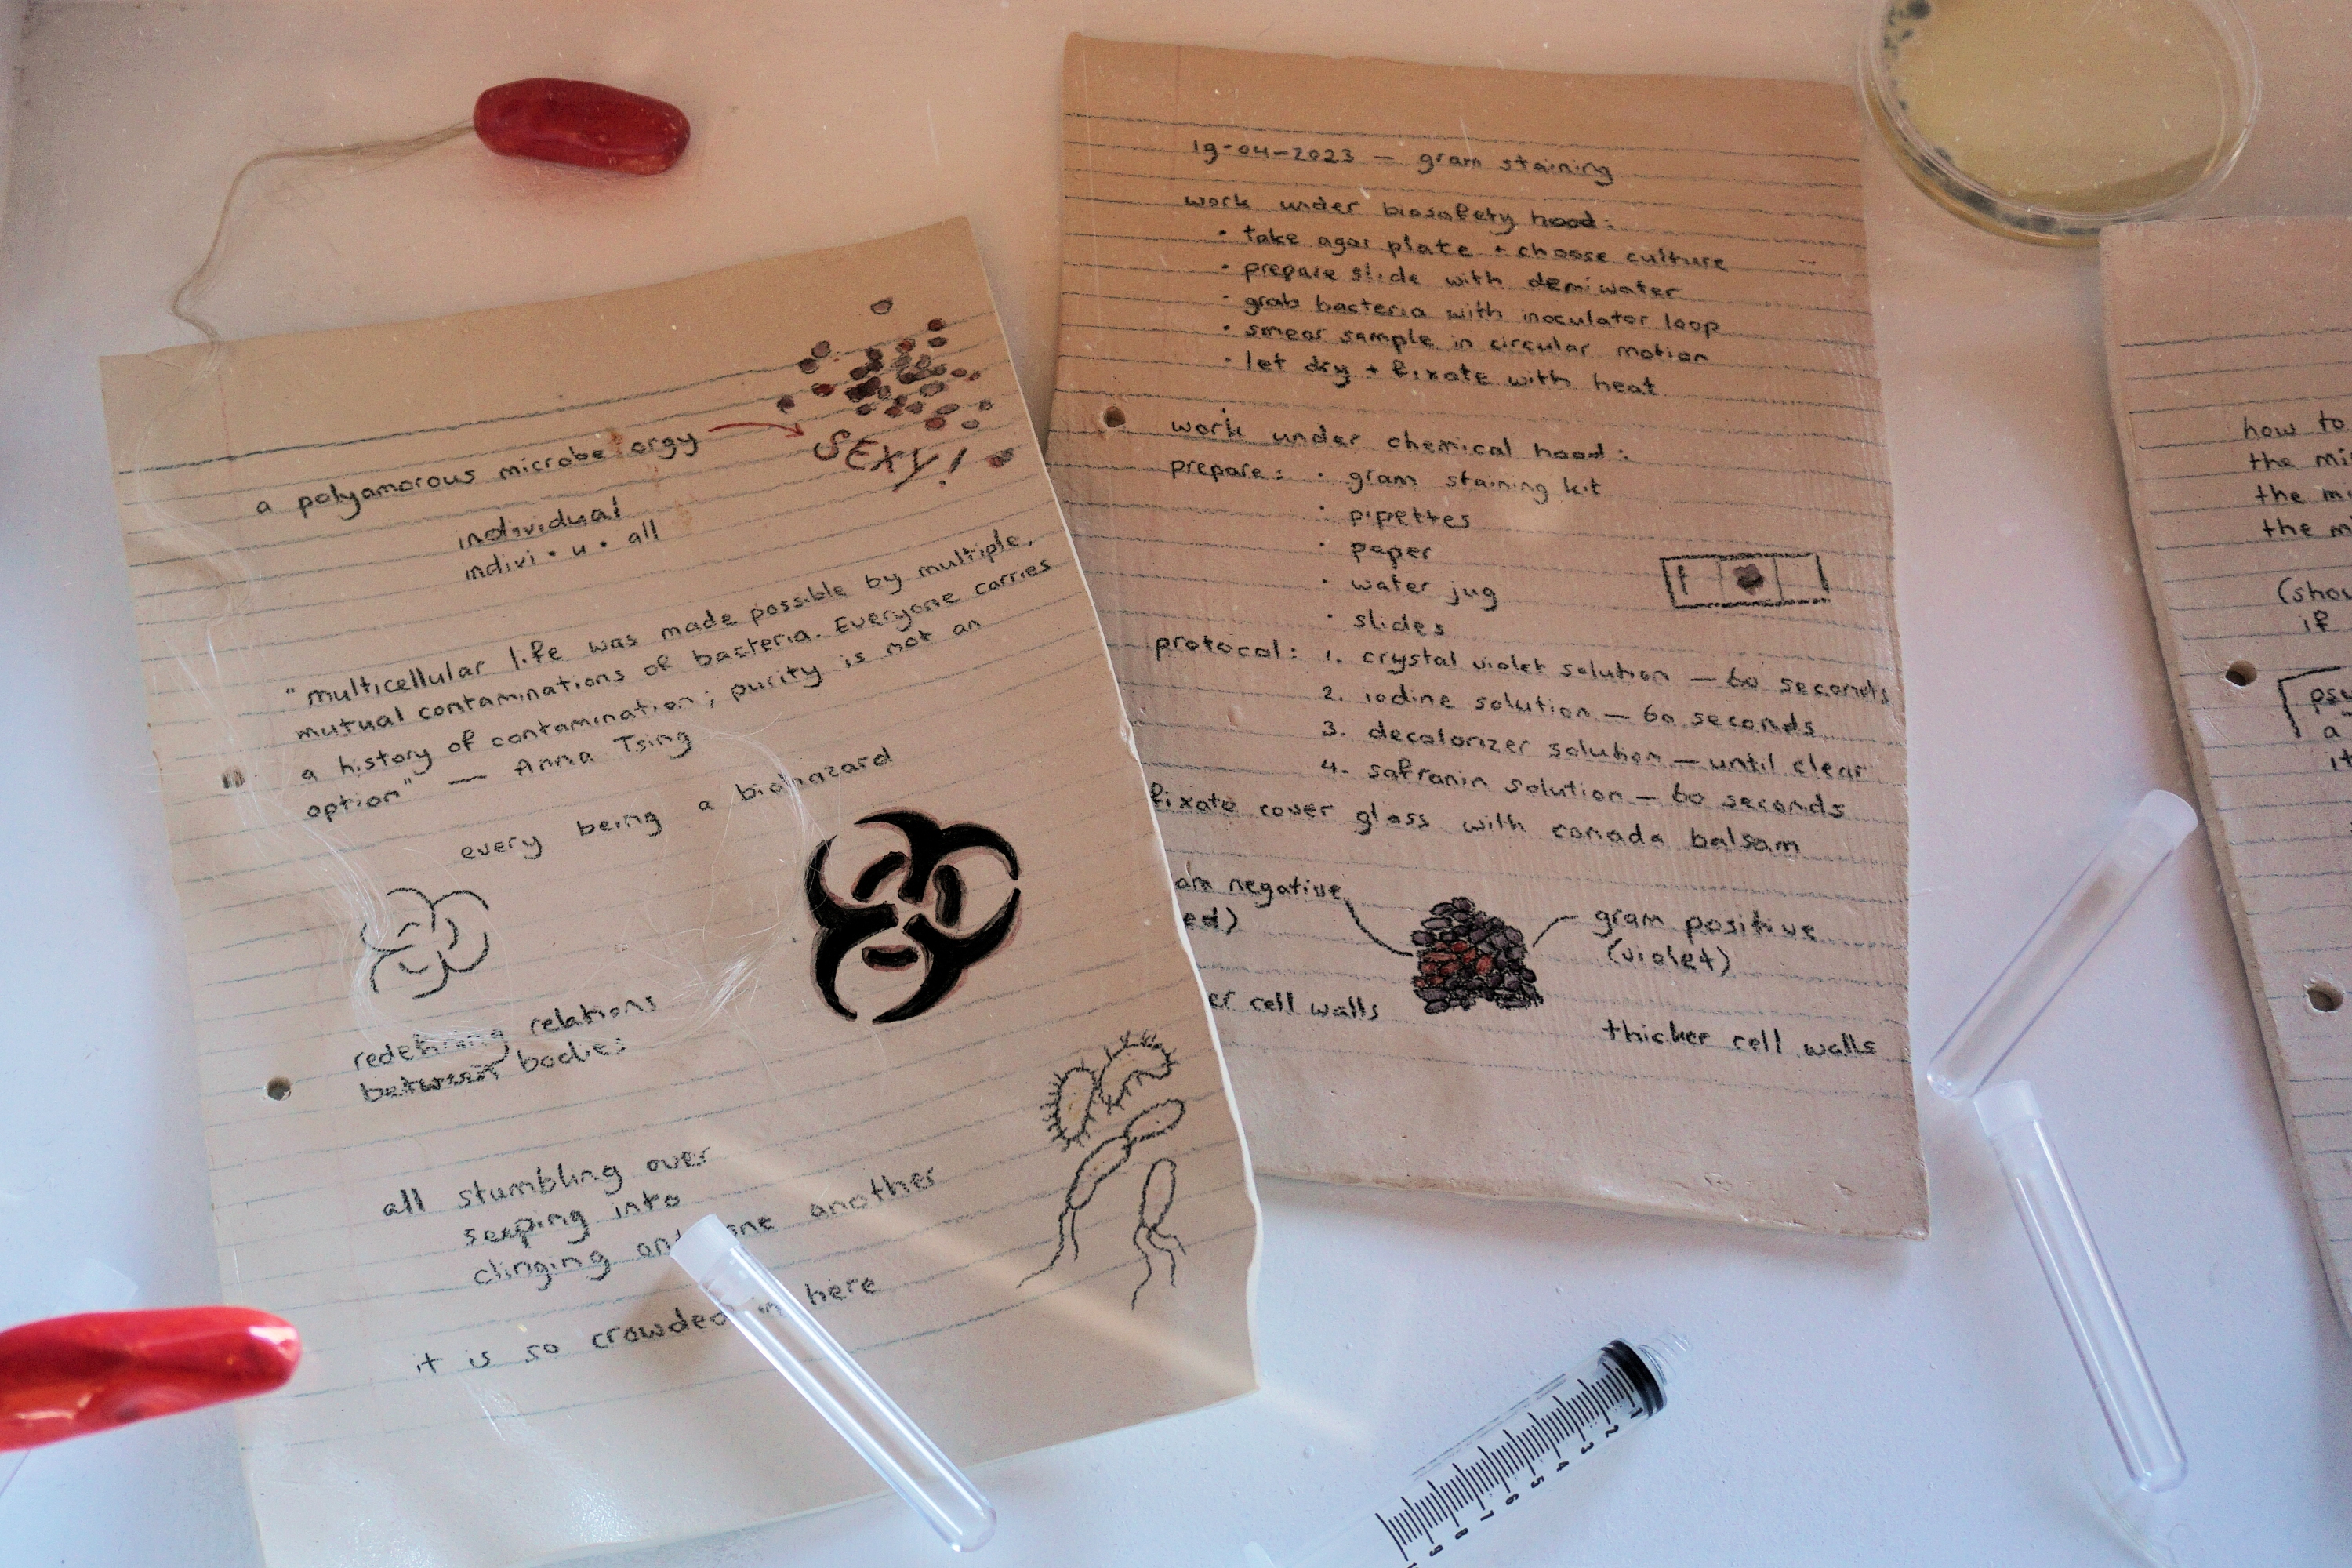 a polyamorous microbe orgy
SEXY!
individual
indivi • u • all
"multicellular life was made possible by multiple,
mutual contaminations of bacteria. Everyone carries
a history of contamination; purity is not an
option" — Anna Tsing
every being a biohazard
redefining relations
between bodies
all stumbling over
seeping into
clinging one another
it is so crowded in here
19-04-2023 — gram staining
work under biosafety hood:
• take agar plate + choose culture
• prepare slide with demiwater
• grab bacteria with inoculator loop
• smear sample in circular motion
• let dry + fixate with heat
work under chemical hood:
prepare: • gram staining kit
• pipettes
• paper
• water jug
• slides
protocol: 1. crystal violet solution — 60 seconds
2. iodine solution — 60 seconds
3. decolorizer solution — until clear
4. safranin solution — 60 seconds
fixate cover glass with canada balsam
negative
gram positive
(violet)
cell walls
thicker cell walls
how to
the
the
the
if
a
1
2
3
4
5
6
7
8
9